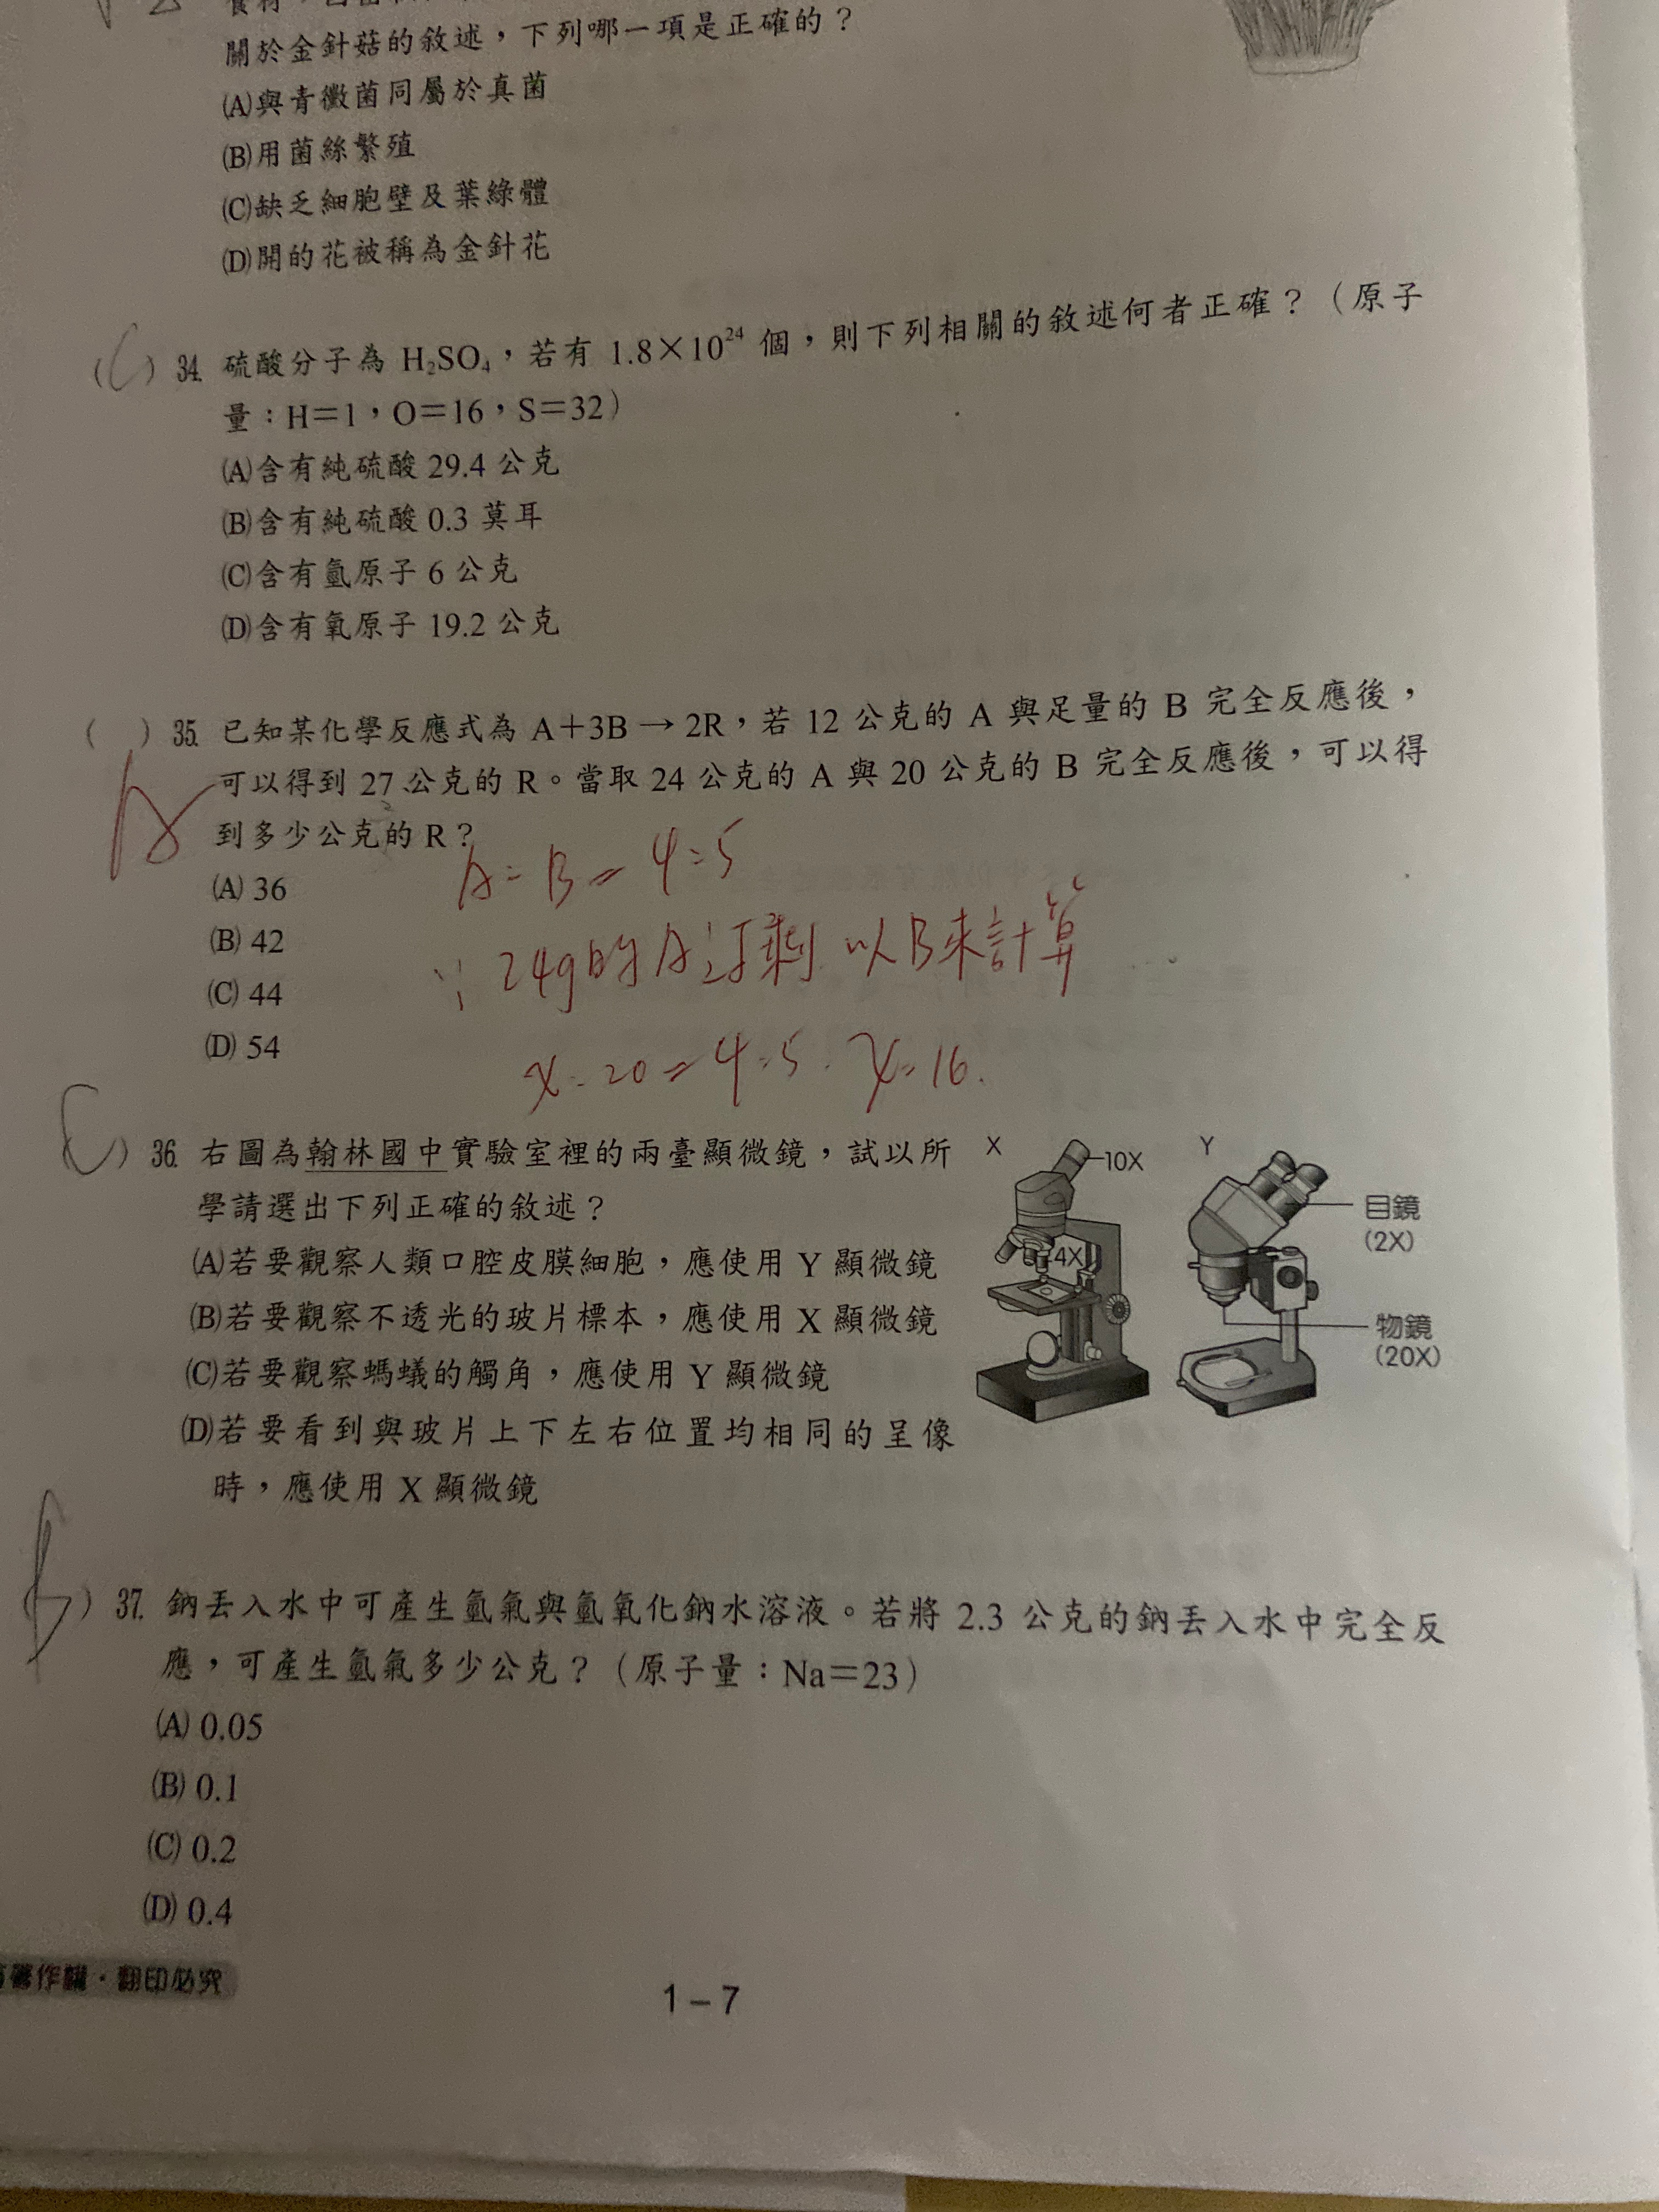 關於金針菇的敘述，下列哪一項是正確的？
(A)與青黴菌同屬於真菌
(B)用菌絲繁殖
(C)缺乏細胞壁及葉綠體
(D)開的花被稱為金針花
(C) 34. 硫酸分子為 H₂SO₄，若有 1.8×10²⁴ 個，則下列相關的敘述何者正確？（原子
量：H＝1，O＝16，S＝32）
(A)含有純硫酸 29.4 公克
(B)含有純硫酸 0.3 莫耳
(C)含有氫原子 6 公克
(D)含有氧原子 19.2 公克
( ) 35. 已知某化學反應式為 A＋3B → 2R，若 12 公克的 A 與足量的 B 完全反應後，
可以得到 27 公克的 R。當取 24 公克的 A 與 20 公克的 B 完全反應後，可以得
A
到多少公克的 R？
A:B=4:5
(A) 36
∵24g的A 剩 以B來計算
(B) 42
(C) 44
(D) 54
x:20=4:5. x=16.
C ) 36. 右圖為翰林國中實驗室裡的兩臺顯微鏡，試以所
學請選出下列正確的敘述？
(A)若要觀察人類口腔皮膜細胞，應使用 Y 顯微鏡
(B)若要觀察不透光的玻片標本，應使用 X 顯微鏡
(C)若要觀察螞蟻的觸角，應使用 Y 顯微鏡
(D)若要看到與玻片上下左右位置均相同的呈像
時，應使用 X 顯微鏡
X
10X
4X
Y
目鏡
(2X)
物鏡
(20X)
) 37. 鈉丟入水中可產生氫氣與氫氧化鈉水溶液。若將 2.3 公克的鈉丟入水中完全反
應，可產生氫氣多少公克？（原子量：Na＝23）
(A) 0.05
(B) 0.1
(C) 0.2
(D) 0.4
著作權・翻印必究
1－7